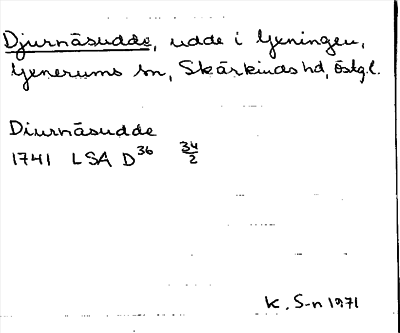 Djurnäsudde, udde i Yxningen,
Yxnerums sn, Skärkinds hd, Östg.l.
Diurnäsudde
1741 LSA D36 34/2
K. S-n 1971